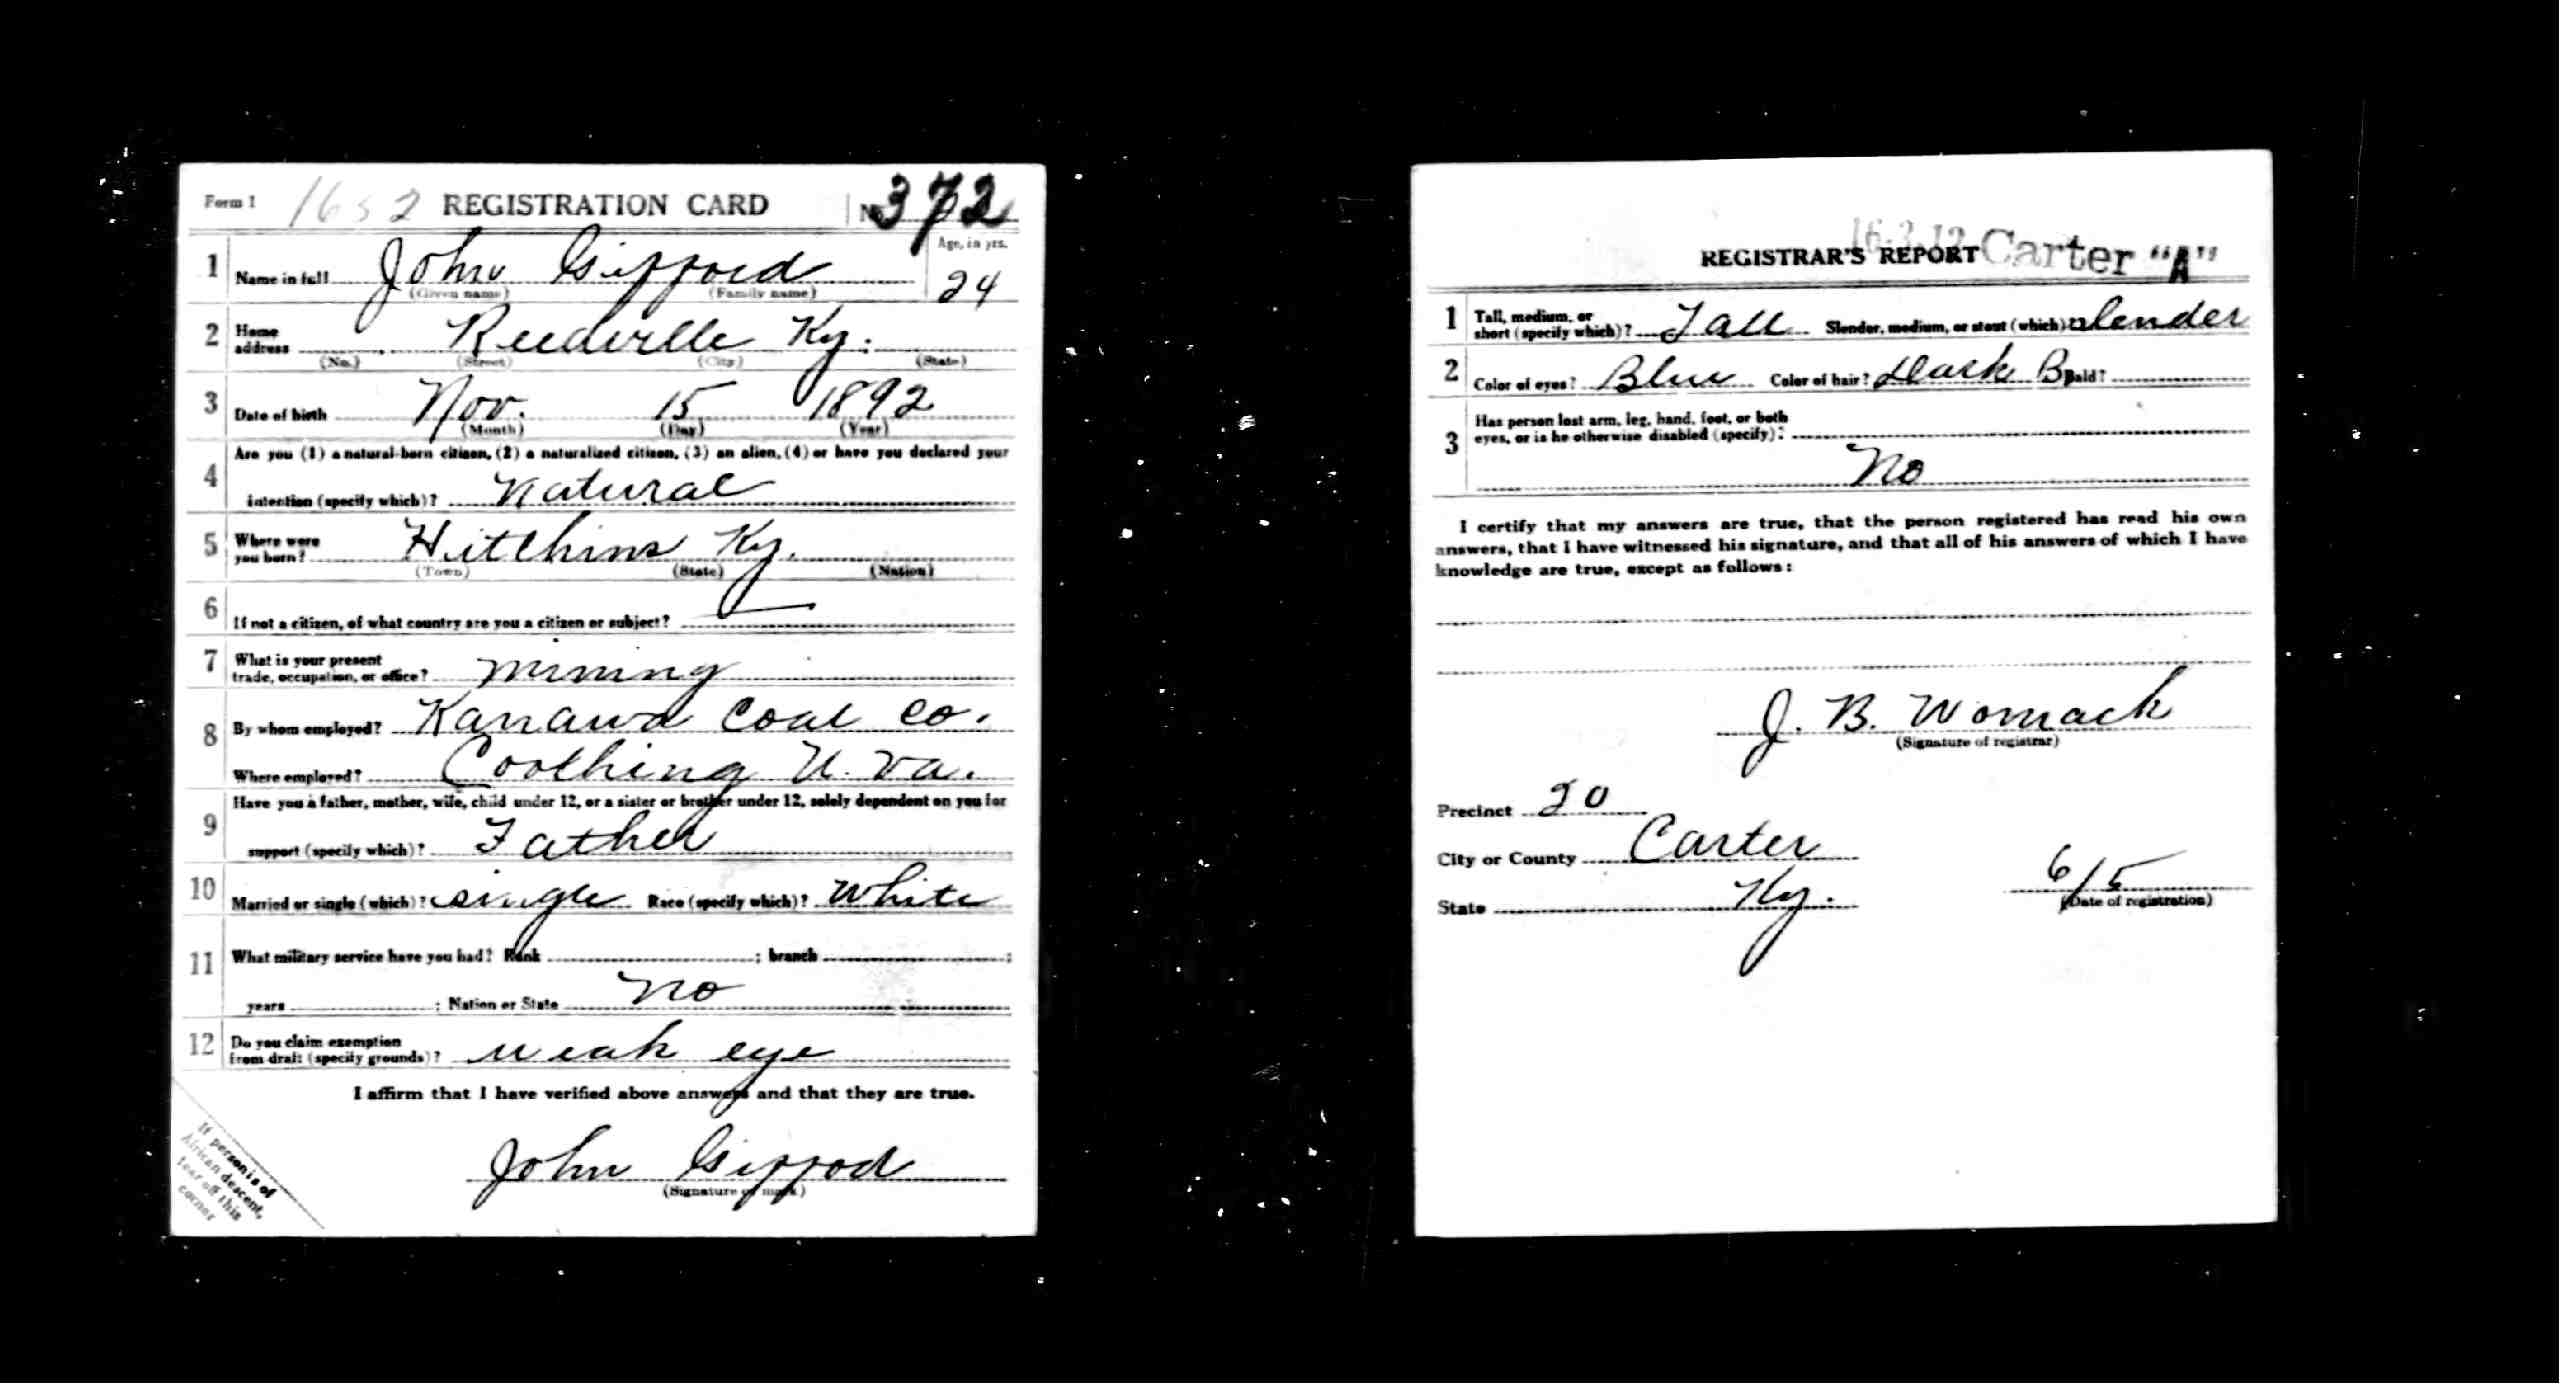 Form 1 1652 REGISTRATION CARD No. 372
1 Name in full John Gifford Age, in yrs. 24
(Given name) (Family name)
2 Home address Reedville Ky.
(No.) (Street) (City) (State)
3 Date of birth Nov. 15 1892
(Month) (Day) (Year)
4 Are you (1) a natural-born citizen, (2) a naturalized citizen, (3) an alien, (4) or have you declared your
intention (specify which)? Natural
5 Where were you born? Hitchins Ky.
(Town) (State) (Nation)
6 If not a citizen, of what country are you a citizen or subject? —
7 What is your present
trade, occupation, or office? mining
8 By whom employed? Kanawa Coal Co.
Where employed? W. Va.
9 Have you a father, mother, wife, child under 12, or a sister or brother under 12, solely dependent on you for
support (specify which)? Father
10 Married or single (which)? single Race (specify which)? White
11 What military service have you had? Rank ; branch ;
years ; Nation or State No
12 Do you claim exemption
from draft (specify grounds)? weak eye
I affirm that I have verified above answers and that they are true.
John Gifford
(Signature or mark)
If person is of
African descent,
tear off this
corner
16-3-12 Carter "A"
REGISTRAR'S REPORT
1 Tall, medium, or
short (specify which)? Tall Slender, medium, or stout (which)? slender
2 Color of eyes? Blue Color of hair? Dark B Bald?
3 Has person lost arm, leg, hand, foot, or both
eyes, or is he otherwise disabled (specify)?
No
I certify that my answers are true, that the person registered has read his own
answers, that I have witnessed his signature, and that all of his answers of which I have
knowledge are true, except as follows:
J. B. Womack
(Signature of registrar)
Precinct 20
City or County Carter
State Ky. 6/5
(Date of registration)